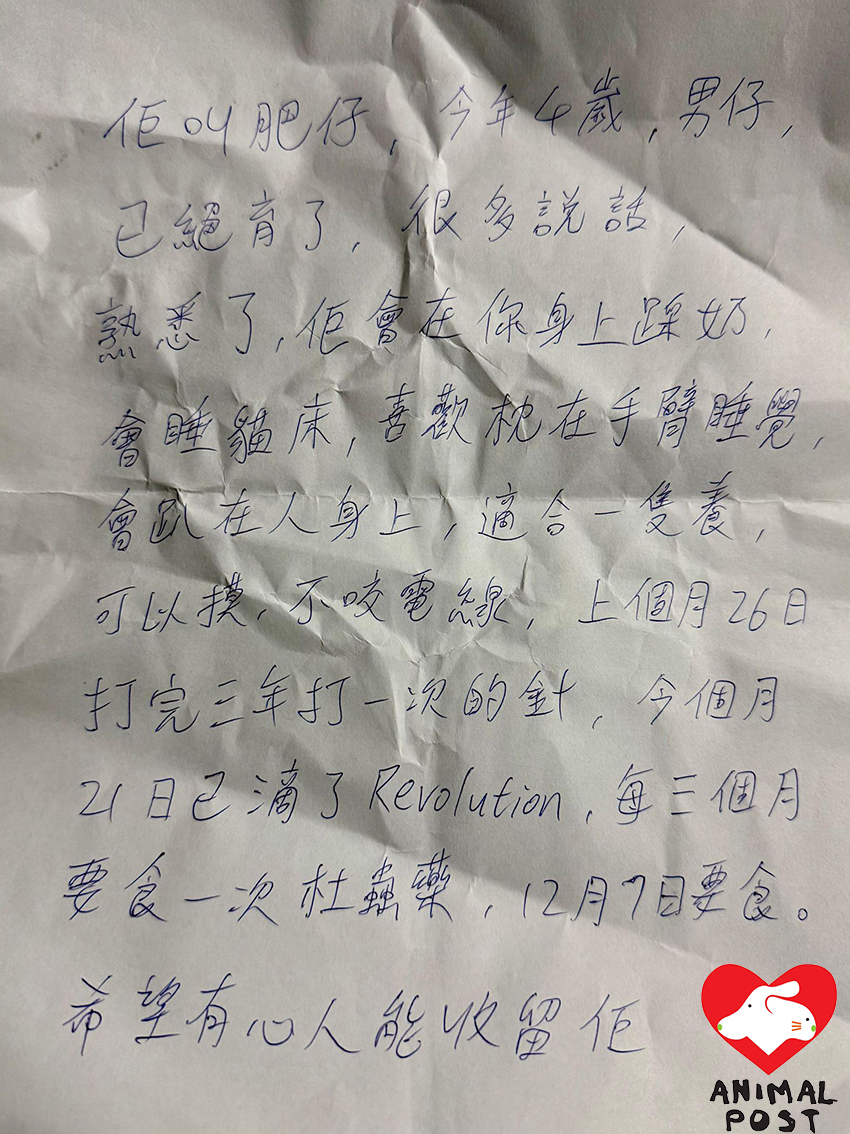 佢叫肥仔，今年4歲，男仔，
已絕育了，很多說話，
熟悉了，佢會在你身上踩奶，
會睡貓床，喜歡枕在手臂睡覺，
會趴在人身上，適合一隻養，
可以摸，不咬電線，上個月26日
打完三年打一次的針，今個月
21日已滴了Revolution，每三個月
要食一次杜蟲藥，12月7日要食。
希望有心人能收留佢
ANIMAL
POST